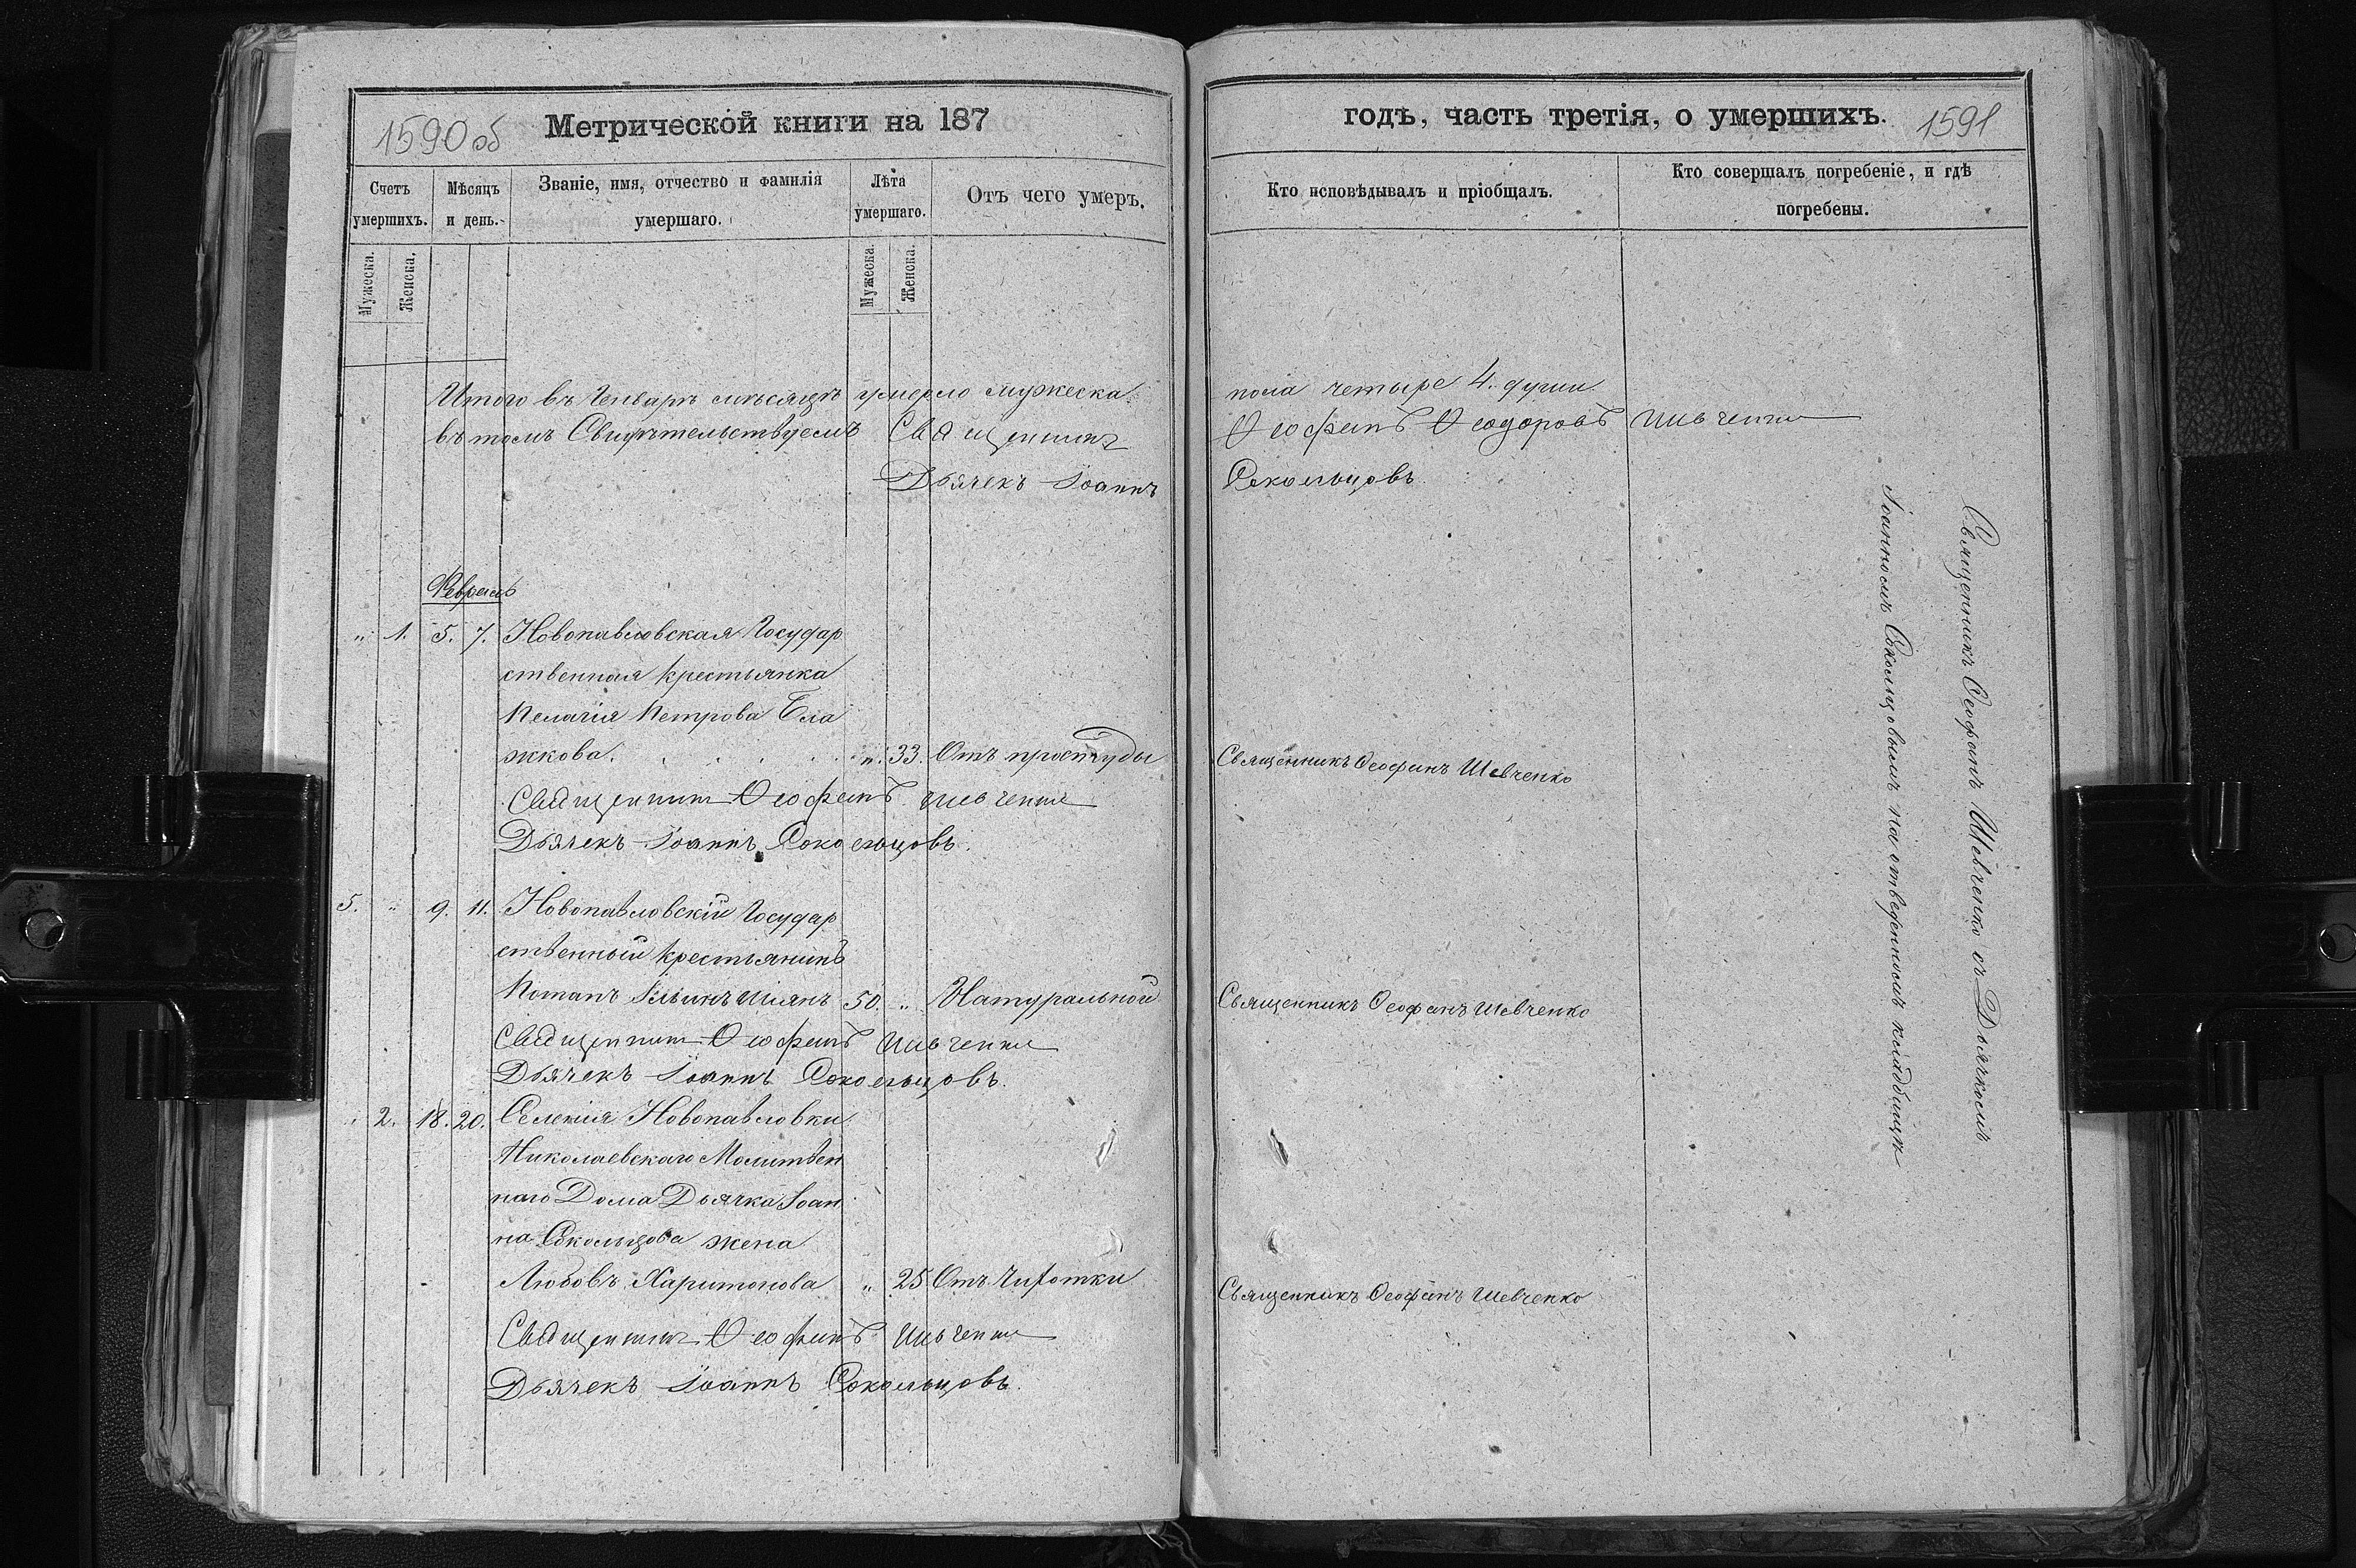 1590 об
Метрической книги на 187
Счетъ умершихъ.
Мѣсяцъ и день.
Званіе, имя, отчество и фамилія умершаго.
Лѣта умершаго.
Отъ чего умеръ.
Мужеска.
Женска.
Мужеска.
Женска.
Итого въ Генварѣ мѣсяцѣ умерло мужеска
въ томъ Свидѣтельствуемъ Священникъ
Дьячекъ Іоаннъ
Февраль
" 1. 5. 7. Новопавловская Государ
ственная крестьянка
Пелагія Петрова Бла
жкова. " 33. Отъ простуды
Священникъ Ѳеофанъ Шевченко
Дьячекъ Іоаннъ Сокольцовъ.
5. " 9. 11. Новопавловскій Государ
ственный крестьянинъ
Потапъ Ильинъ 50. " Натуральной
Священникъ Ѳеофанъ Шевченко
Дьячекъ Іоаннъ Сокольцовъ.
" 2. 18. 20. Селенія Новопавловки
Николаевскаго Молитвен
наго Дома Дьячка Іоан
на Сокольцова жена
Любовь Харитонова " 25 Отъ Чихотки
Священникъ Ѳеофанъ Шевченко
Дьячекъ Іоаннъ Сокольцовъ.
годъ, часть третія, о умершихъ.
1591
Кто исповѣдывалъ и пріобщалъ.
Кто совершалъ погребеніе, и гдѣ погребены.
пола четыре 4. души
Ѳеофанъ Ѳеодоровъ Шевченко
Сокольцовъ
Священникъ Ѳеофанъ Шевченко
Священникъ Ѳеофанъ Шевченко
Священникъ Ѳеофанъ Шевченко
Священникъ Ѳеофанъ Шевченко съ Дьячкомъ
Іоанномъ Сокольцовымъ на отведенномъ кладбищѣ